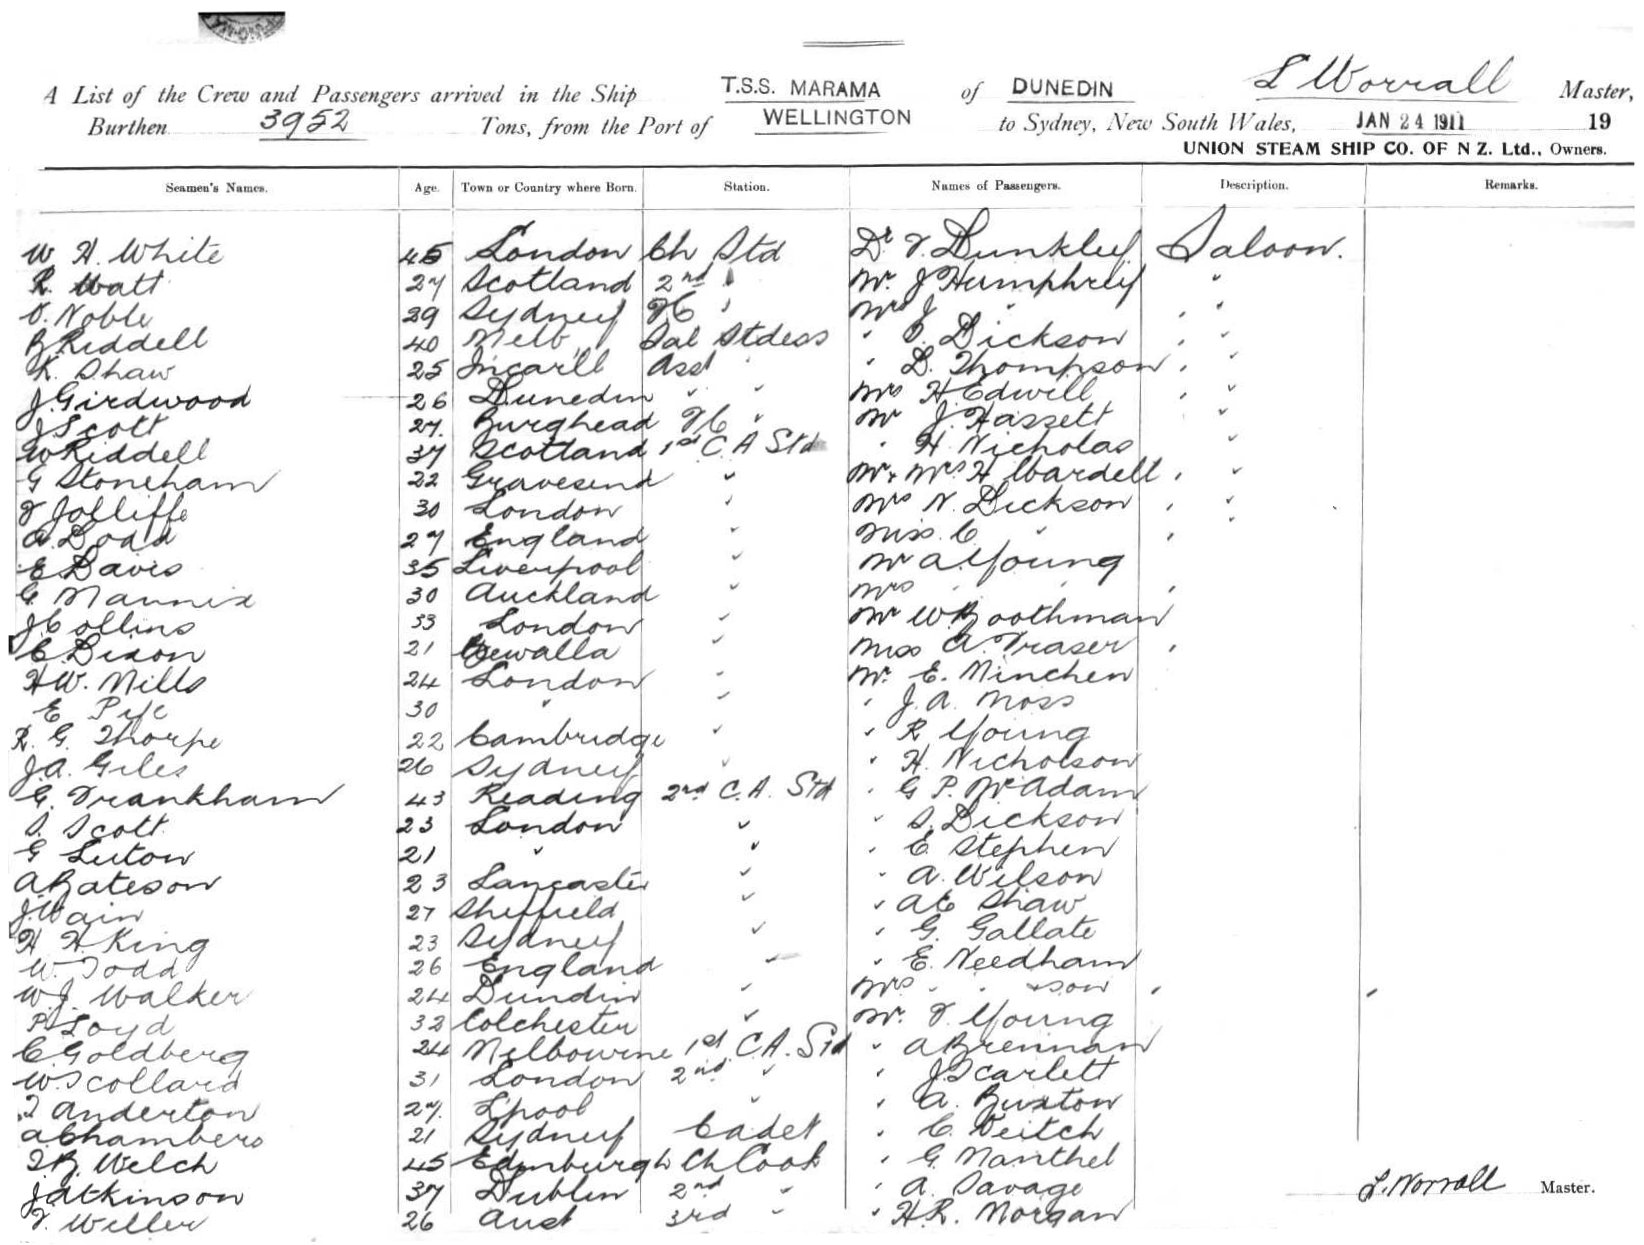 A List of the Crew and Passengers arrived in the Ship T.S.S. MARAMA of DUNEDIN L Worrall Master,
Burthen 3952 Tons, from the Port of WELLINGTON to Sydney, New South Wales, JAN 24 1911 19
UNION STEAM SHIP CO. OF N Z. Ltd., Owners.
Seamen's Names. Age. Town or Country where Born. Station. Names of Passengers. Description. Remarks.
W H. White 45 London Ch Std Dr Dunkley Saloon.
R. Watt 27 Scotland 2nd " Mr. J Humphrey "
Noble 29 Sydney " J "
Riddell 40 Melb Sal Stdess " Dickson "
K. Shaw 25 Asst " " Thompson "
J Girdwood 26 Dunedin " " Mrs H Edwill "
J Scott 27. Burghead " Mr J. Hassett "
W Riddell 37 Scotland 1st C. A Std " H Nicholas "
G Stoneham 22 Gravesend " Mr & Mrs H Wardell "
Jolliffe 30 London " Mrs N. Dickson "
A. Dodd 27 England " Miss C " "
E Davis 35 Liverpool " Mr A Young
G. Mannix 30 Auckland " Mrs " "
J Collins 33 London " Mr W Boothman
C. Dixon 21 " Miss A. Fraser
H W. Mills 24 London " Mr. E. Minchen
E Pye 30 " " " J. A. Moss
R. G. Thorpe 22 Cambridge " " R Young
J. A. Giles 26 Sydney " " H. Nicholson
G. Frankham 43 Reading 2nd C. A. Std " G P. McAdam
S. Scott 23 London " " S. Dickson
G Luton 21 " " " E Stephen
A Bateson 23 Lancaster " " A. Wilson
J. Wain 27 Sheffield " " Shaw
H H King 23 Sydney " " G. Gallate
W. Todd 26 England " " E. Needham
W. J. Walker 24 Dundin " Mrs " " & son
P Loyd 32 Colchester " Mr. Young
C Goldberg 24 Melbourne 1st C. A. Std " A Brennan
W. Scollard 31 London 2nd " " J Scarlett
Anderton 27. Lpool " " A. Buxton
A Chambers 21 Sydney Cadet " C. Veitch
Welch 45 Edinburgh Ch Cook " G. Manthel
J Atkinson 37 Dublin 2nd " " A. Savage
Weller 26 Aust 3rd " " H. R. Morgan
L. Worrall Master.